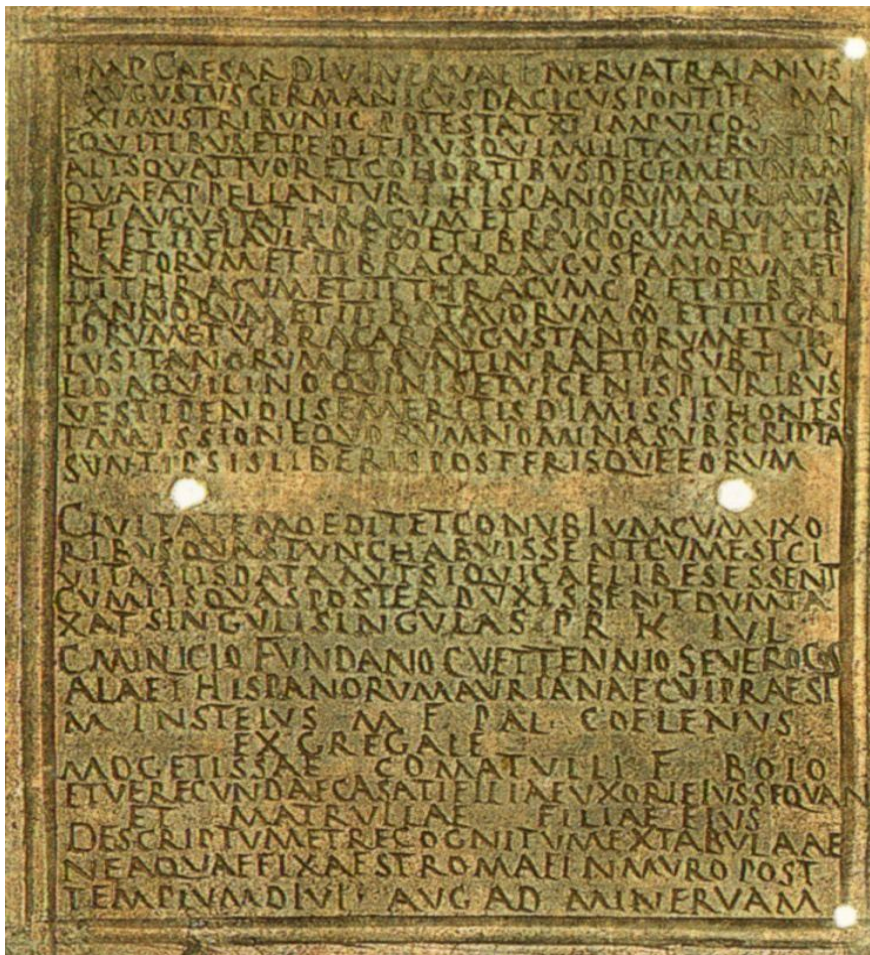 IMP CAESAR DIVI NERVAE F NERVA TRAIANVS
AVGVSTVS GERMANICVS DACICVS PONTIFEX MA
XIMVS TRIBVNIC POTESTAT XI IMP VI COS V P P
EQVITIBVS ET PEDITIBVS QVI MILITAVERVNT IN
ALIS QVATTVOR ET COHORTIBVS DECEM ET VNAM
QVAE APPELLANTVR I HISPANORVM AVRIANA
ET I AVGVSTA THRACVM ET I SINGVLARIVM C R
P F ET II FLAVIA P F ∞ ET I BREVCORVM ET I ET II
RAETORVM ET III BRACARAVGVSTANORVM ET
III THRACVM ET III THRACVM C R ET III BRI
TANNORVM ET III BATAVORVM ∞ ET IIII GAL
LORVM ET V BRACARAVGVSTANORVM ET VII
LVSITANORVM ET SVNT IN RAETIA SVB TI IV
LIO AQVILINO QVINIS ET VICENIS PLVRIBVS
VE STIPENDIIS EMERITIS DIMISSIS HONES
TA MISSIONE QVORVM NOMINA SVBSCRIPTA
SVNT IPSIS LIBERIS POSTERISQVE EORVM
CIVITATEM DEDIT ET CONVBIVM CVM VXO
RIBVS QVAS TVNC HABVISSENT CVM EST CI
VITAS IIS DATA AVT SI QVI CAELIBES ESSENT
CVM IIS QVAS POSTEA DVXISSENT DVMTA
XAT SINGVLI SINGVLAS P R K IVL
C MINICIO FVNDANO C VETTENNIO SEVERO COS
ALAE I HISPANORVM AVRIANAE CVI PRAEST
M INSTEIVS M F PAL COELENVS
EX GREGALE
MOGETISSAE COMATVLLI F BOIO
ET VERECVNDAE CASATI FILIAE VXORI EIVS SEQVAN
ET MATRVLLAE FILIAE EIVS
DESCRIPTVM ET RECOGNITVM EX TABVLA AE
NEA QVAE FIXA EST ROMAE IN MVRO POST
TEMPLVM DIVI AVG AD MINERVAM